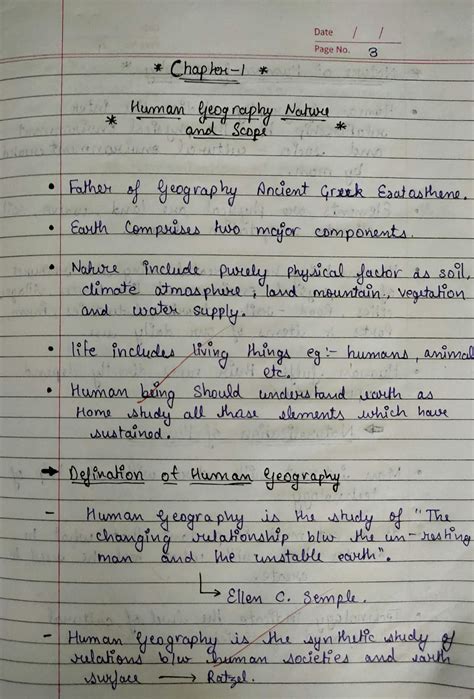 Date / /
Page No. 3
* Chapter-1 *
Human Geography Nature
* and Scope *
• Father of Geography Ancient Greek Esatasthene.
• Earth Comprises two major components.
• Nature include purely physical factor as soil,
climate atmosphere, land mountain, vegetation
and water supply.
• life includes living things eg:- humans, animal
etc.
• Human being should understand earth as
Home study all those elements which have
sustained.
→ Defination of Human Geography
- Human Geography is the study of "The
changing relationship b/w the un-resting
man and the unstable earth".
↳ Ellen C. Semple.
- Human Geography is the synthetic study of
relations b/w human societies and earth
surface → Ratzel.